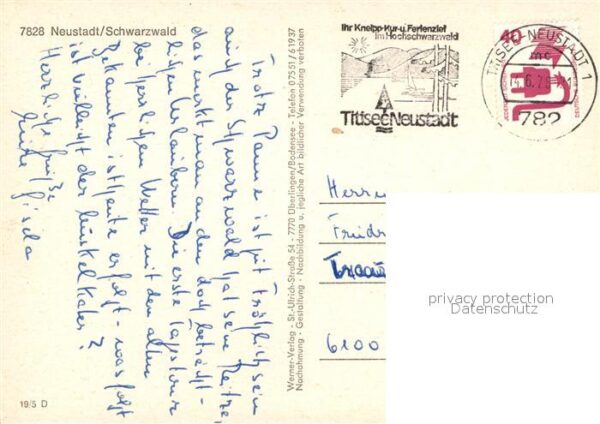 7828 Neustadt/Schwarzwald
Trotz Panne ist gut fröhlich sein
auch der Schwarzwald hat seine Reize,
das merkt man an den doch beträcht-
lichen Urlaubern. Die erste Tagestour
bei herrlichem Wetter mit den alten
Bekannten ist heute erfolgt - was folgt
ist vielleicht der Muskelkater?
Herzliche Grüße
Gisela
19/5 D
Werner-Verlag - St.-Ulrich-Straße 54 - 7770 Überlingen/Bodensee - Telefon 07551/61937
Nachahmung - Gestaltung - Nachbildung u. jegliche Art bildlicher Verwendung verboten
Ihr Kneipp-Kur-u. Ferienziel
im Hochschwarzwald
Titisee Neustadt
TITISEE-NEUSTADT 1
782
40
Herrn
6100
privacy protection
Datenschutz